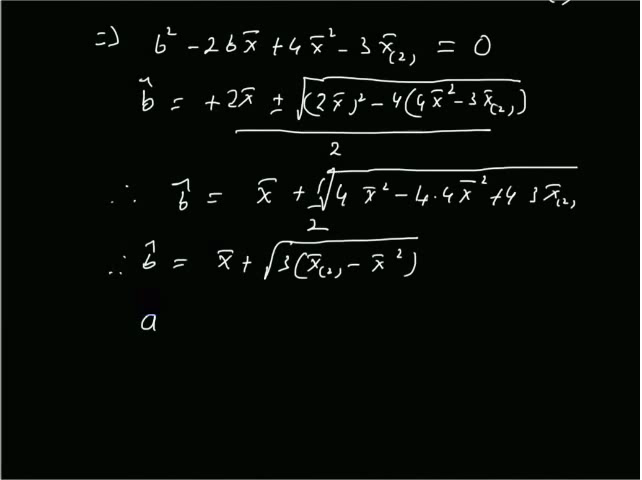 => b² - 2bx̄ + 4x̄² - 3x̄₍₂₎ = 0
b̂ = +2x̄ ± √((2x̄)² - 4(4x̄² - 3x̄₍₂₎)) / 2
∴ b̂ = x̄ + 1/2 √(4 x̄² - 4·4x̄² + 4 3x̄₍₂₎)
∴ b̂ = x̄ + √(3(x̄₍₂₎ - x̄²))
a